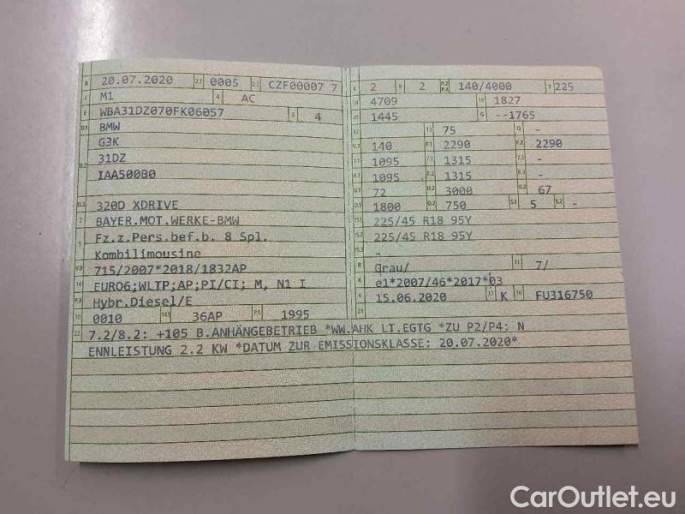 20.07.2020 0005 CZF00007 7
M1 AC
WBA31DZ070FK06057 4
BMW
G3K
31DZ
IAA500B0
320D XDRIVE
BAYER.MOT.WERKE-BMW
Fz.z.Pers.bef.b. 8 Spl.
Kombilimousine
715/2007*2018/1832AP
EURO6;WLTP;AP;PI/CI; M, N1 I
Hybr.Diesel/E
0010 36AP 1995
2 2 140/4000 225
4709 1827
1445 --1765
75 -
140 2290 2290
1095 1315 -
1095 1315 -
72 3000 67
1800 750 5 -
225/45 R18 95Y
225/45 R18 95Y
-
grau/ 7/
e1*2007/46*2017*03
15.06.2020 K FU316750
7.2/8.2: +105 B.ANHÄNGEBETRIEB *WW.AHK LT.EGTG *ZU P2/P4: N
ENNLEISTUNG 2.2 KW *DATUM ZUR EMISSIONSKLASSE: 20.07.2020*
CarOutlet.eu